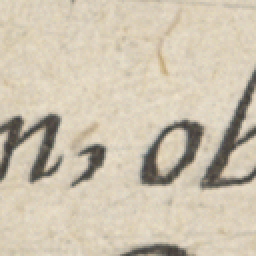 n, ob